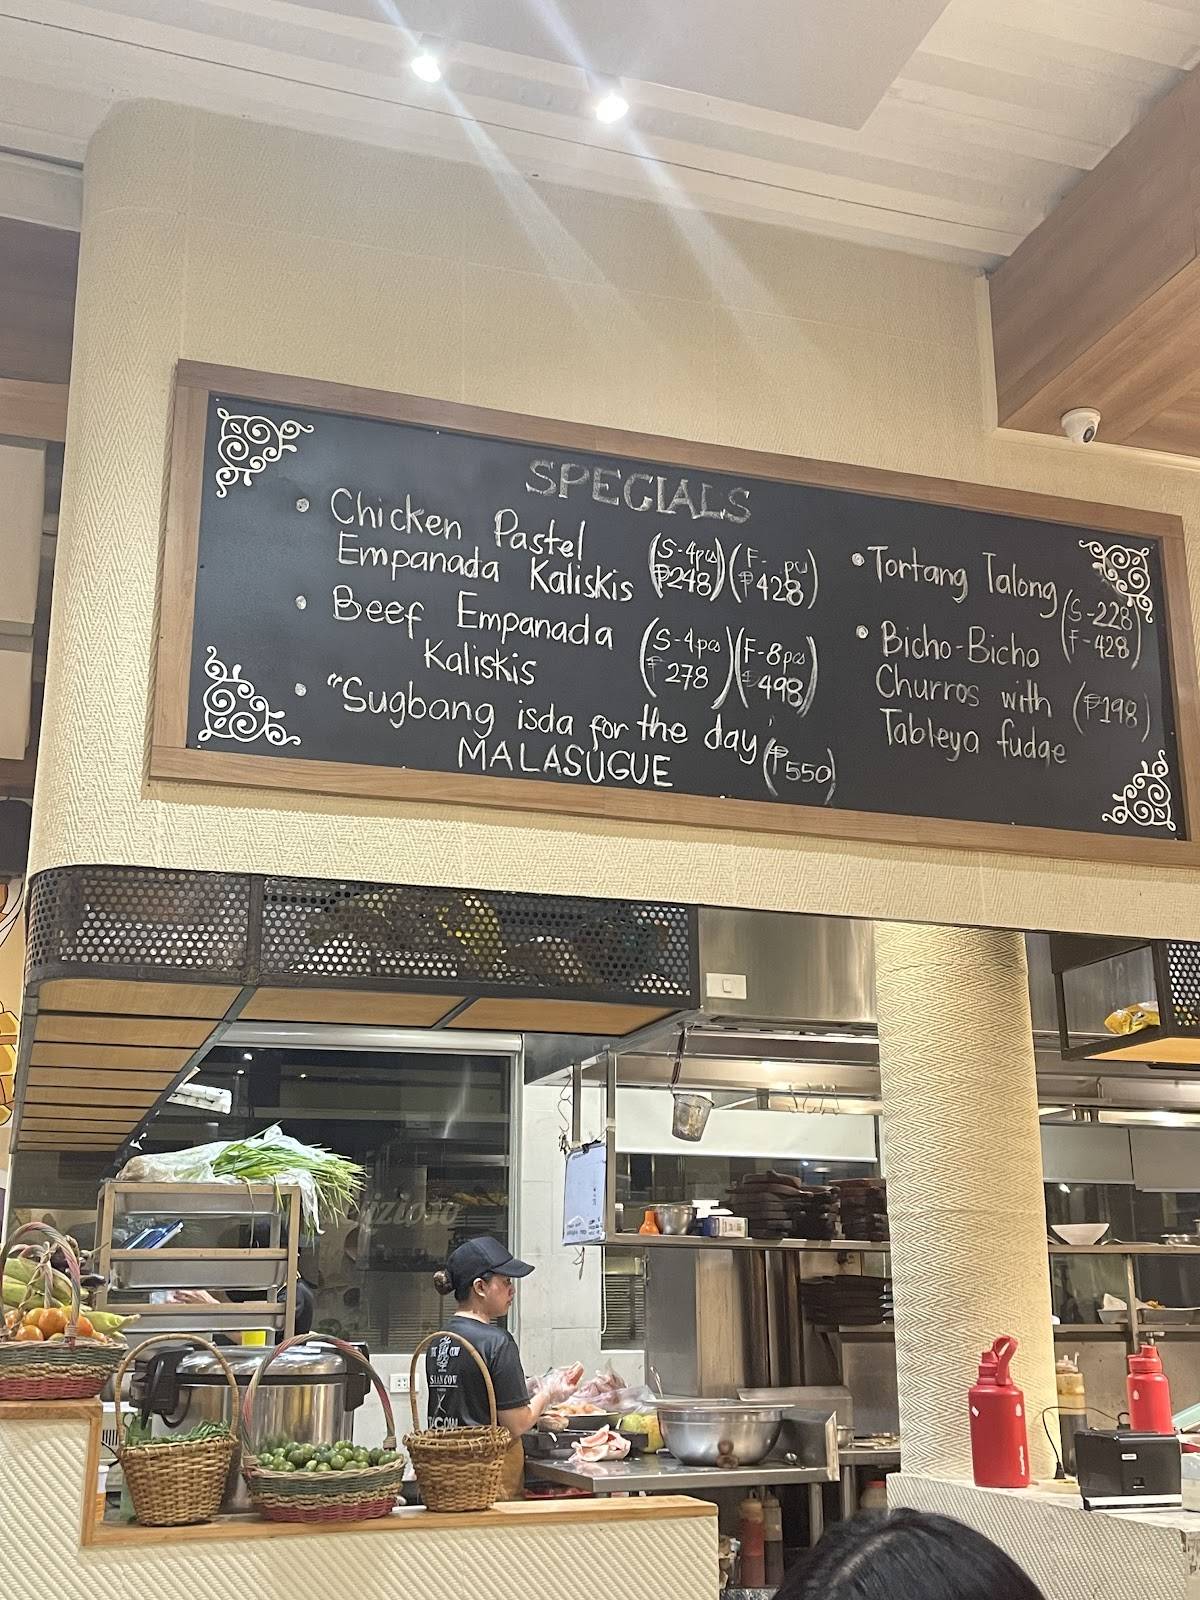 SPECIALS
• Chicken Pastel
Empanada Kaliskis (S-4pcs ₱248) (F- pcs ₱428)
• Beef Empanada
Kaliskis (S-4pcs ₱278) (F-8pcs ₱498)
• "Sugbang isda for the day'
MALASUGUE (₱550)
• Tortang Talong (S-228 F-428)
• Bicho-Bicho
Churros with (₱198)
Tableya fudge